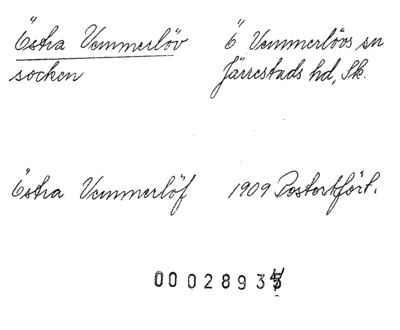 Östra Vemmerlöv
socken
Ö Vemmerlövs sn
Järrestads hd, Sk.
Östra Vemmerlöf
1909 Postortfört.
00028934